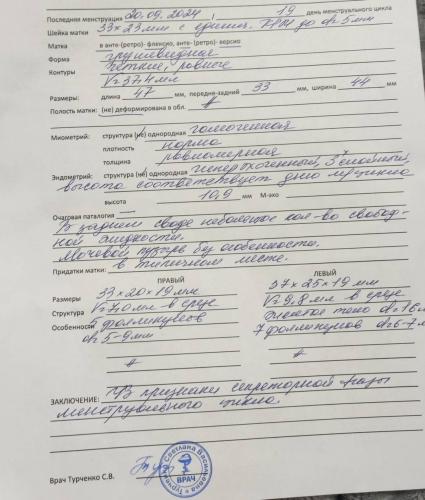 Последняя менструация 20.09.2024, 19 день менструального цикла
Шейка матки 33×23мм с единич. до d=5мм
Матка в анте-(ретро)- флексио, анте- (ретро)- версио
Форма грушевидная
Контуры четкие, ровные
V=37,4мл
Размеры: длина 47 мм, передне-задний 33 мм, ширина 44 мм
Полость матки: (не) деформирована в обл. #
Миометрий: структура (не) однородная гомогенная
плотность норма
толщина равномерная
Эндометрий: структура (не) однородная гиперэхогенный, 3х слойный,
высота соответствует дню м.цикла
высота 10,9 мм М-эхо
Очаговая паталогия
В заднем своде небольшое кол-во свобод-
ной жидкости.
Мочевой пузырь без особенности.
Придатки матки: в типичном месте.
ПРАВЫЙ ЛЕВЫЙ
Размеры 33×20×19мм 37×25×19 мм
Структура V=7,0мл в срезе V=9,8мл в срезе
Особенности 5 фолликулов желтое тело d=16м
d=5-9мм 7 фолликулов d=6-7м
# #
ЗАКЛЮЧЕНИЕ: УЗ признаки секреторной фазы
менструального цикла.
Врач Турченко С.В.
Светлана Васильевна Турченко
ВРАЧ